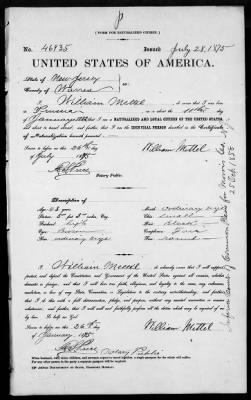 (FORM FOR NATURALIZED CITIZEN.)
No. 46935 Issued July 28, 1875
UNITED STATES OF AMERICA.
State of New Jersey
County of Warren
I, William Mettel, do swear that I was born
in Prussia on the 11th day
of January; that I am a NATURALIZED AND LOYAL CITIZEN OF THE UNITED STATES,
and about to travel abroad; and further, that I am the IDENTICAL PERSON described in the Certificate
of Naturalization herewith presented.
Sworn to before me, this 26th day
of July 1875
William Mettel
Notary Public.
Description of
Age:
Stature: 5 feet inches, Eng.
Forehead: high
Eyes: Brown
Nose: ordinary size
Mouth: ordinary size
Chin: small
Hair: Black
Complexion: Fair
Face: round
I, William Mettel, do solemnly swear that I will support, protect, and
defend the Constitution and Government of the United States against all enemies, whether domestic
or foreign; and that I will bear true faith, allegiance, and loyalty to the same, any ordinance,
resolution, or law of any State, Convention, or Legislature to the contrary notwithstanding; and further, that
I do this with a full determination, pledge, and purpose, without any mental reservation or evasion
whatsoever; and further, that I will well and faithfully perform all the duties which may be required of me
by law: So help me God.
William Mettel
Sworn to before me, this 26th day
of 1875
Notary Public